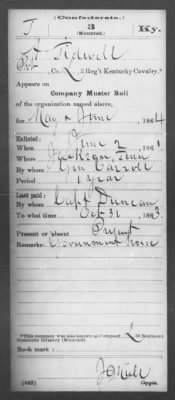 (Confederate.)
T 3 Ky.
(Mounted.)
Tidwell
Pvt, Co. L, 3 Reg't Kentucky Cavalry.*
Appears on
Company Muster Roll
of the organization named above,
for May & June, 1864
Enlisted:
When June 2, 1861
Where Jackson, Tenn
By whom Gen Carroll
Period 1 year
Last paid:
By whom Capt Duncan
To what time Oct 31, 1863
Present or absent Present
Remarks: Government horse
*This company was also known as Company L, 3d Regiment
Kentucky Infantry (Mounted).
Book mark:
(642) Copyist.